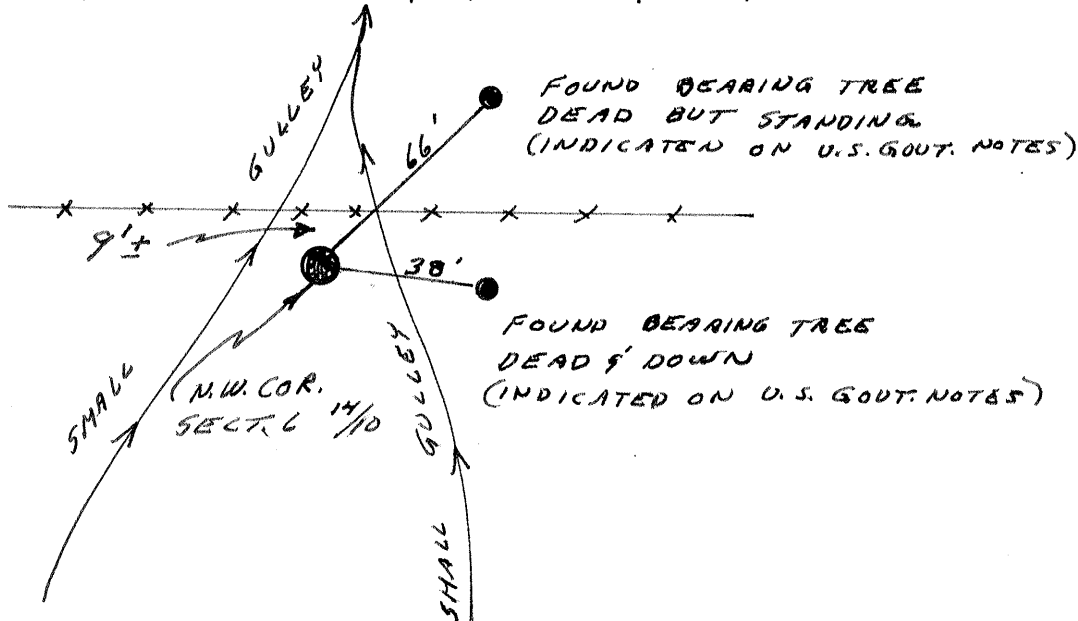 GULLEY
FOUND BEARING TREE
DEAD BUT STANDING
(INDICATEN ON U.S. GOUT. NOTES)
66'
9'±
38'
FOUND BEARING TREE
DEAD & DOWN
(INDICATED ON U.S. GOUT. NOTES)
SMALL
N.W. COR.
SECT. 6 14/10
GULLEY
SMALL